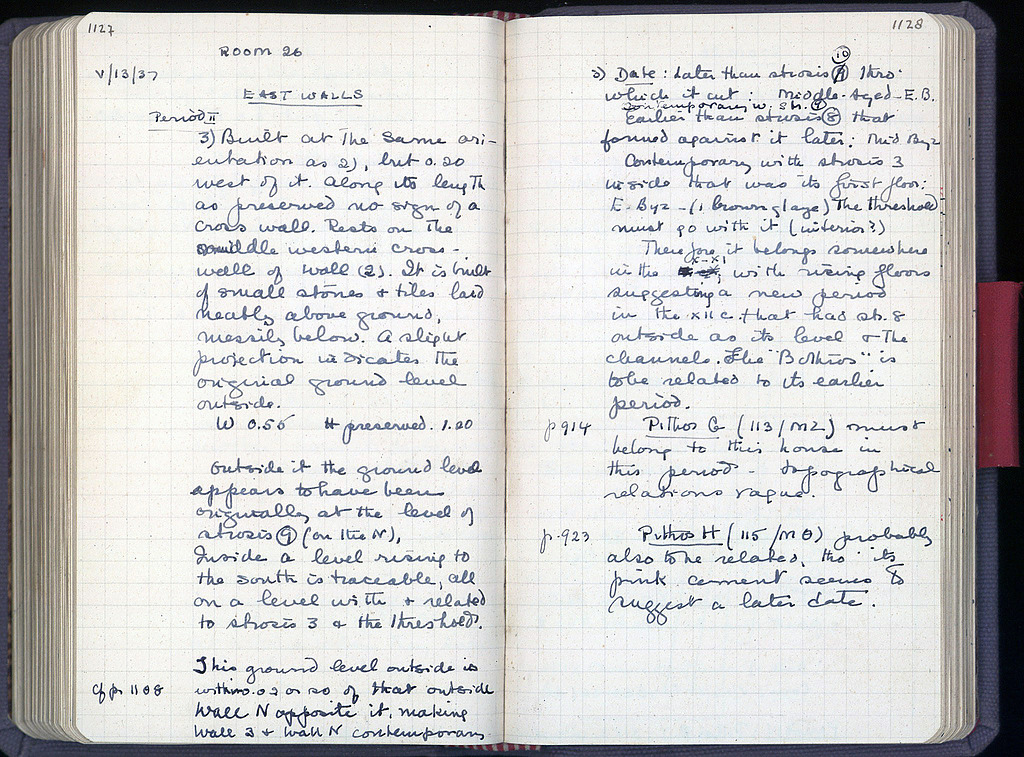 1127
ROOM 26
V/13/37
EAST WALLS
Period II
3) Built at the same ori-
entation as 2), but 0.20
west of it. Along its length
as preserved no sign of a
cross wall. Rests on the
middle western cross-
wall of wall (2). It is built
of small stones + tiles laid
neatly above ground,
messily below. A slight
projection indicates the
original ground level
outside.
W 0.55 H preserved. 1.20
Outside it the ground level
appears to have been
originally at the level of
strosis 9 (on the N),
Inside a level rising to
the south is traceable, all
on a level with + related
to strosis 3 + the threshold.
This ground level outside is
cf p. 1108 within .02 or so of that outside
Wall N opposite it, making
Wall 3 + Wall N contemporary
1128
10
3) Date: Later than strosis thro.
which it cut: Middle-Aged-E.B.
Contemporary w. st. 9
Earlier than strosis 8 that
formed against it later: Mid Byz
Contemporary with strosis 3
inside that was its first floor:
E-Byz-(1 brown glaze) The threshold
must go with it (interior?)
Therefore it belongs somewhere
x-xi
in the with rising floors
suggesting a new period
in the xii c. that had st. 8
outside as its level + the
channels. The "Bothros" is
to be related to its earlier
period.
p 914 Pithos G (113/MZ) must
belong to this house in
this period - topographical
relations vague.
p. 923 Pithos H (115/MΘ) probably
also to be related, tho' its
pink cement seems to
suggest a later date.